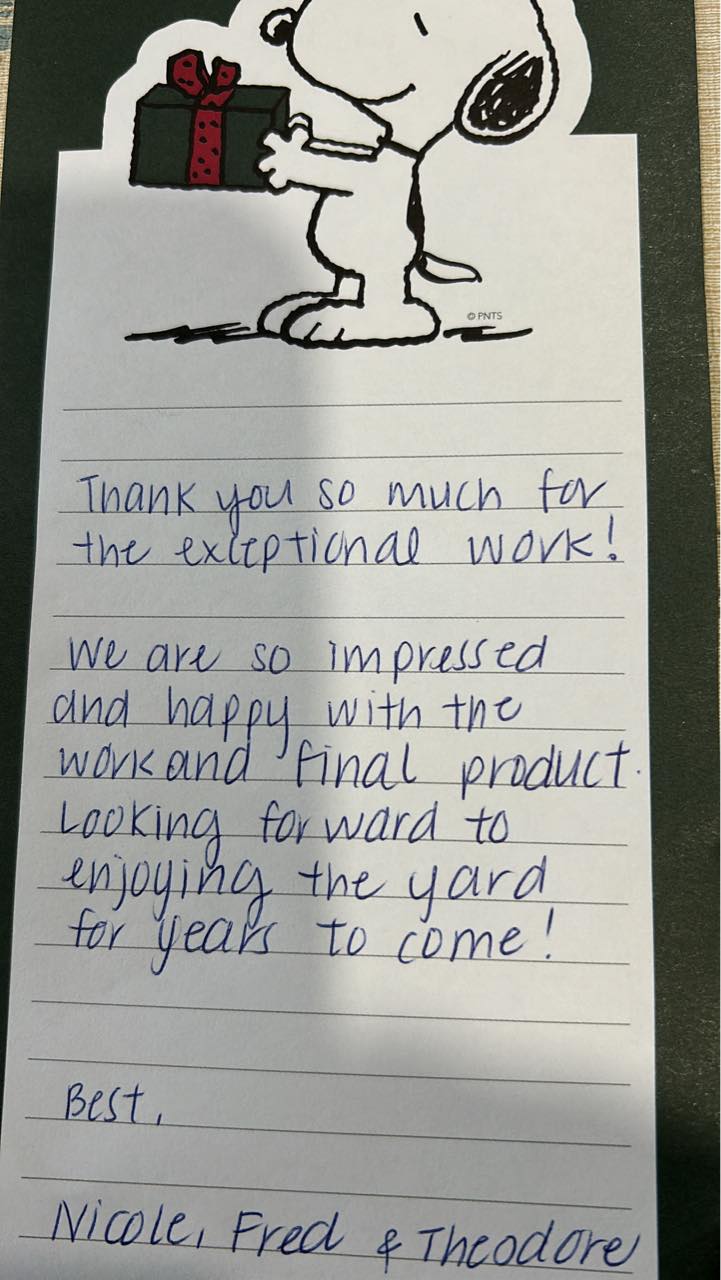 © PNTS
Thank you so much for
the exceptional work!
We are so impressed
and happy with the
work and final product.
Looking forward to
enjoying the yard
for years to come!
Best,
Nicole, Fred & Theodore